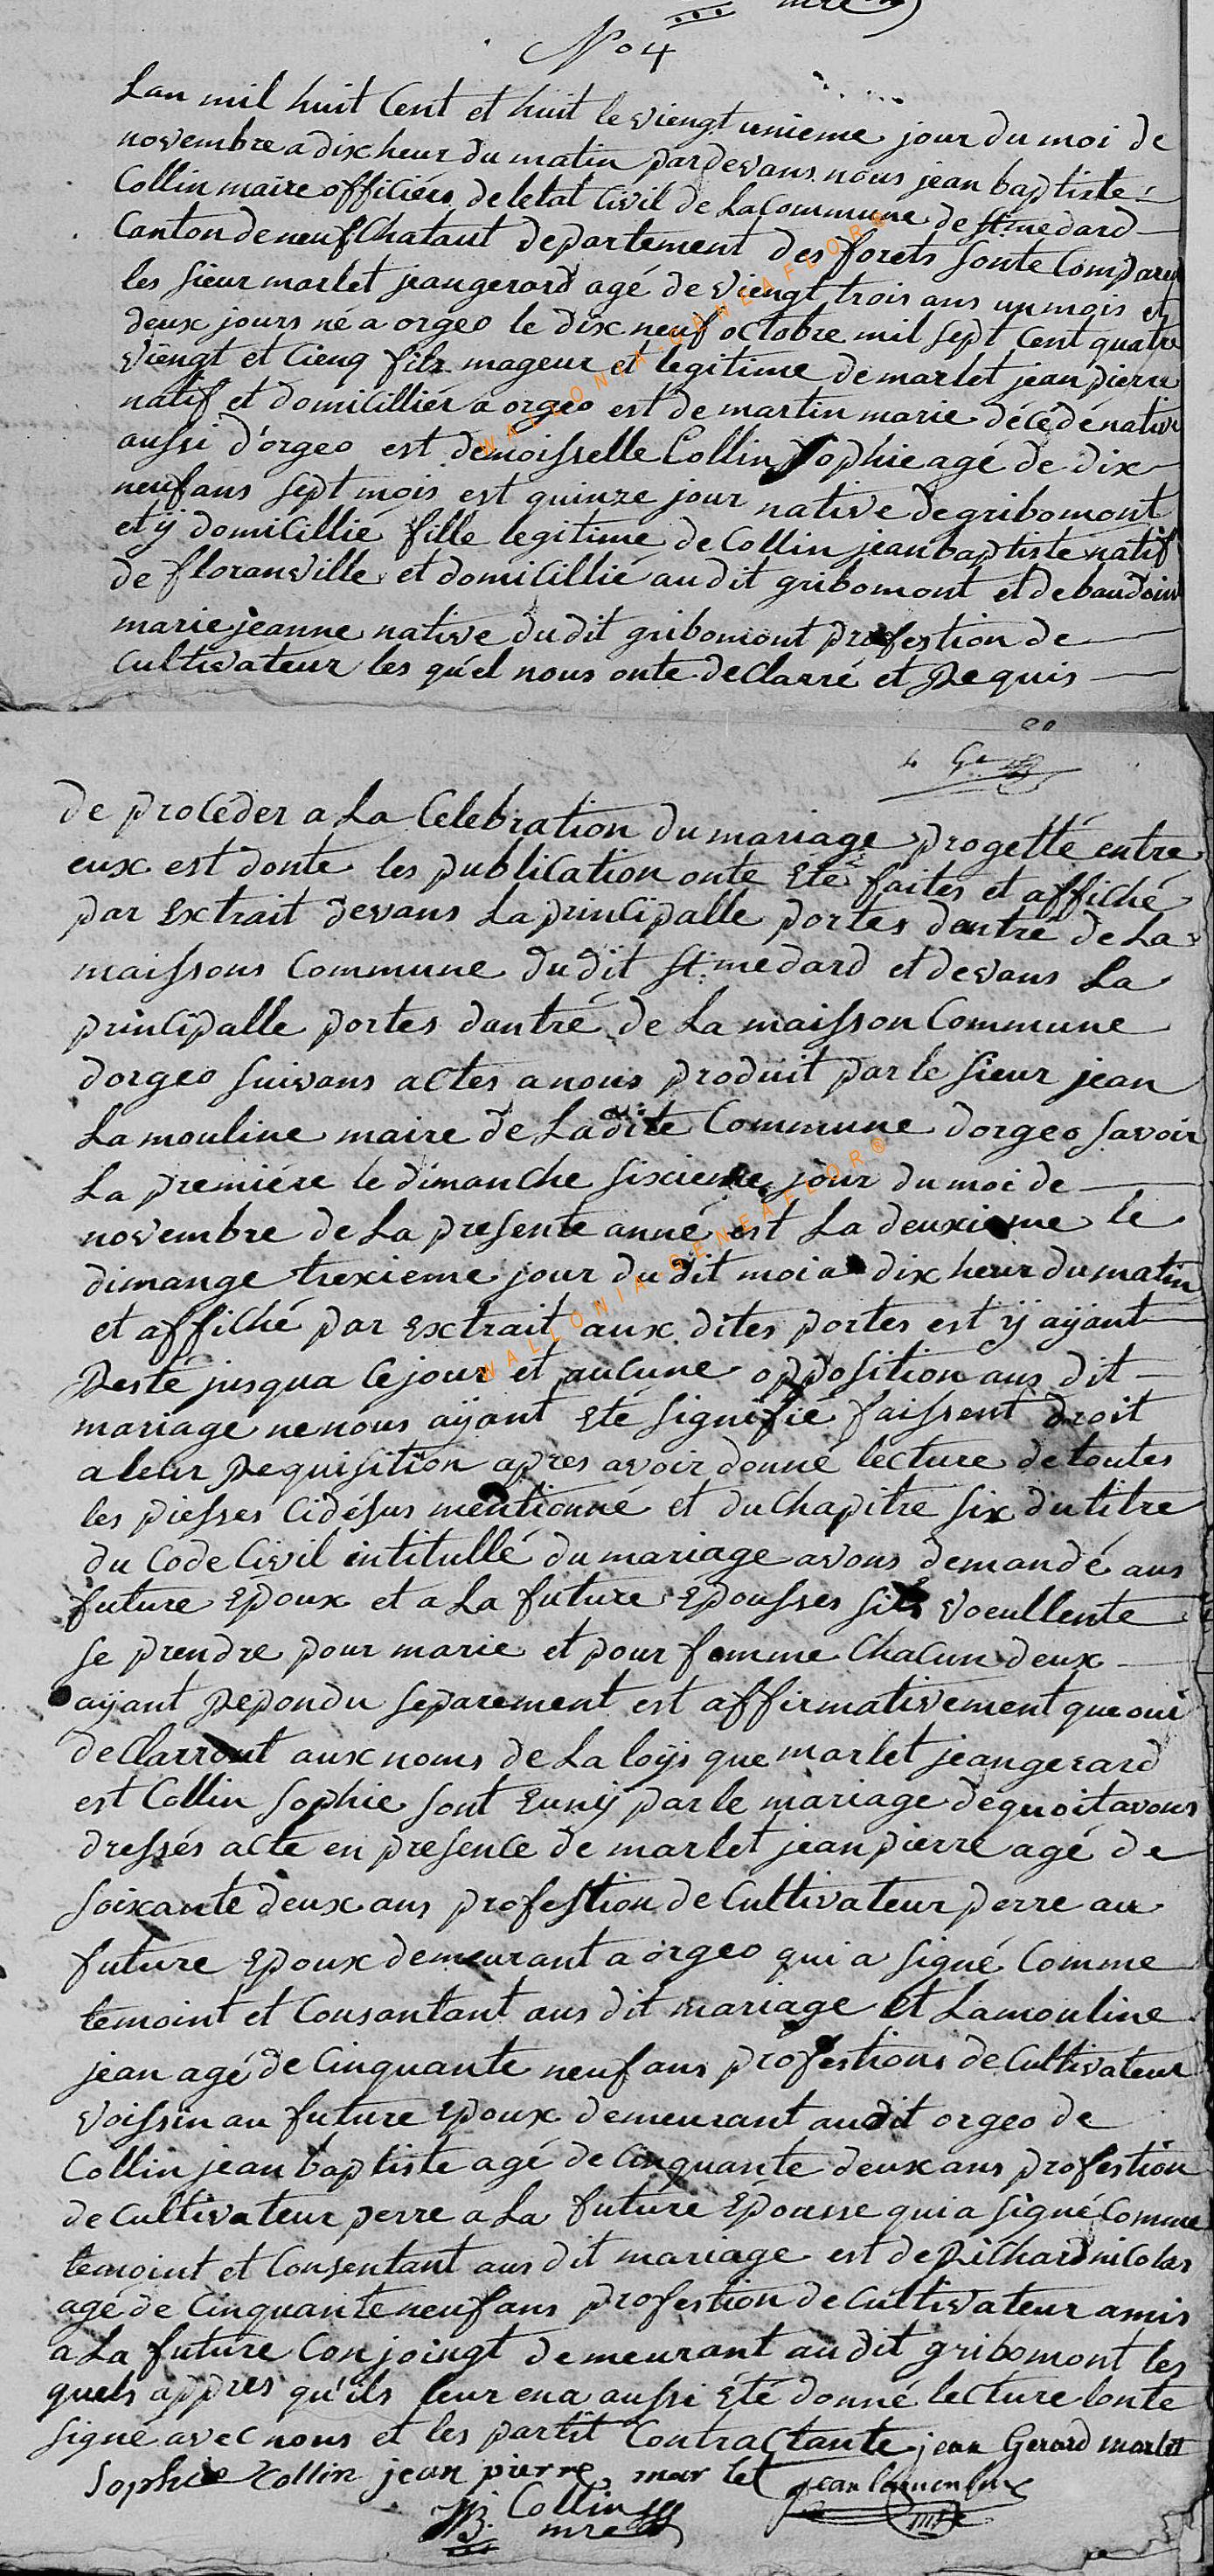 mre
No 4
Lan mil huit Cent et huit le viengt unieme jour du moi de
novembre a dix heur du matin pardevans nous jean baptiste
Collin maire officiers de letat Civil de La Commune de St medard
Canton de neufChataut departement des forets sonte Comparu
les sieur marlet jean gerard agé de viengt trois ans un mois et
deux jours né a orgeo le dix neuf octobre mil sept Cent quatre
viengt et Cienq fils mageur et legitime de marlet jean pierre
natif et domicilliér a orgeo est de martin marie décédé native
aussi d'orgeo est demoisselle Collin Sophie agé de dix
neuf ans sept mois est quinze jour native de gribomont
et ÿ domicillié fille legitime de Collin jean baptiste natif
de floranville et domicillié au dit gribomont et de baudoin
marie jeanne native du dit gribomont profestion de
Cultivateur les quel nous onte declarré et Requis
de procéder a La Celebration du mariage progetté entre
eux est donte les publication onte Eté faites et affiché
par Extrait devans La principalle portes dantré de La
maissons Commune du dit St medard et devans La
principalle portes dantré de La maisson Commune
dorgeo suivans actes a nous produit par le sieur jean
Lamouline maire de Ladite Commune dorgeo savoir
La premiére le dimanche sixieme jour du moi de
novembre de La presente anné est La deuxieme le
dimange trexieme jour du dit moi a dix heur du matin
et affiché par Extrait aux dites portes est ÿ aÿant
Resté jusqua Ce jour et aucune opposition aus dit
mariage ne nous aÿant Eté signifié faissent droit
a leur Requisition apres avoir donné lecture de toutes
les piesses Cidésus mentionné et du Chapitre six du titre
du Code Civil intitullé du mariage avons demandé aus
future Epoux et a La future Epousses sils voeullente
se prendre pour marie et pour femme Chacun deux
aÿant Repondu separement est affirmativement que oui
deClarront aux noms de La loÿs que marlet jean gerard
est Collin Sophie sont Eunÿ par le mariage de quoit avons
dressés acte en presence de marlet jean pierre agé de
soixante deux ans profestion de Cultivateur perre au
future Epoux demeurant a orgeo qui a signé Comme
temoint et Consantant aus dit mariage Et Lamouline
jean agé de Cinquante neuf ans profestions de Cultivateur
voissin au future Epoux demeurant audit orgeo de
Collin jean baptiste agé de Cinquante deux ans profestion
de Cultivateur perre a La future Épousse qui a signé Comme
temoint et Consentant aus dit mariage est de Richard nicolas
agé de Cinquante neuf ans profestion de Cultivateur amis
a La future Conjoingt demeurant audit gribomont les
quels appres qu'ils leur en a aussi Eté donné lecture lonte
signe avec nous et les partit Contractante jean Gerard marlet
Sophie Collin jean pierre marlet jean lamouline
JB Collin
mre
WALLONIA-GENEAFLOR®
WALLONIA-GENEAFLOR®